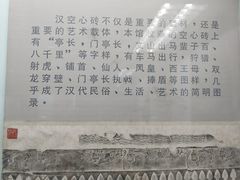 汉空心砖不仅是重要的  料，还是
重要的艺术载体，本馆  的空心砖上
有“亭长，门亭长，  山出马辈子百、
八千里”等字样，有车马出行，狩猎、
射虎、铺首、仙人、凤皇、西王母、双
龙穿壁、门亭长执戟、捧盾等图样，几
乎成了汉代民俗、生活、艺术的简明图
录。